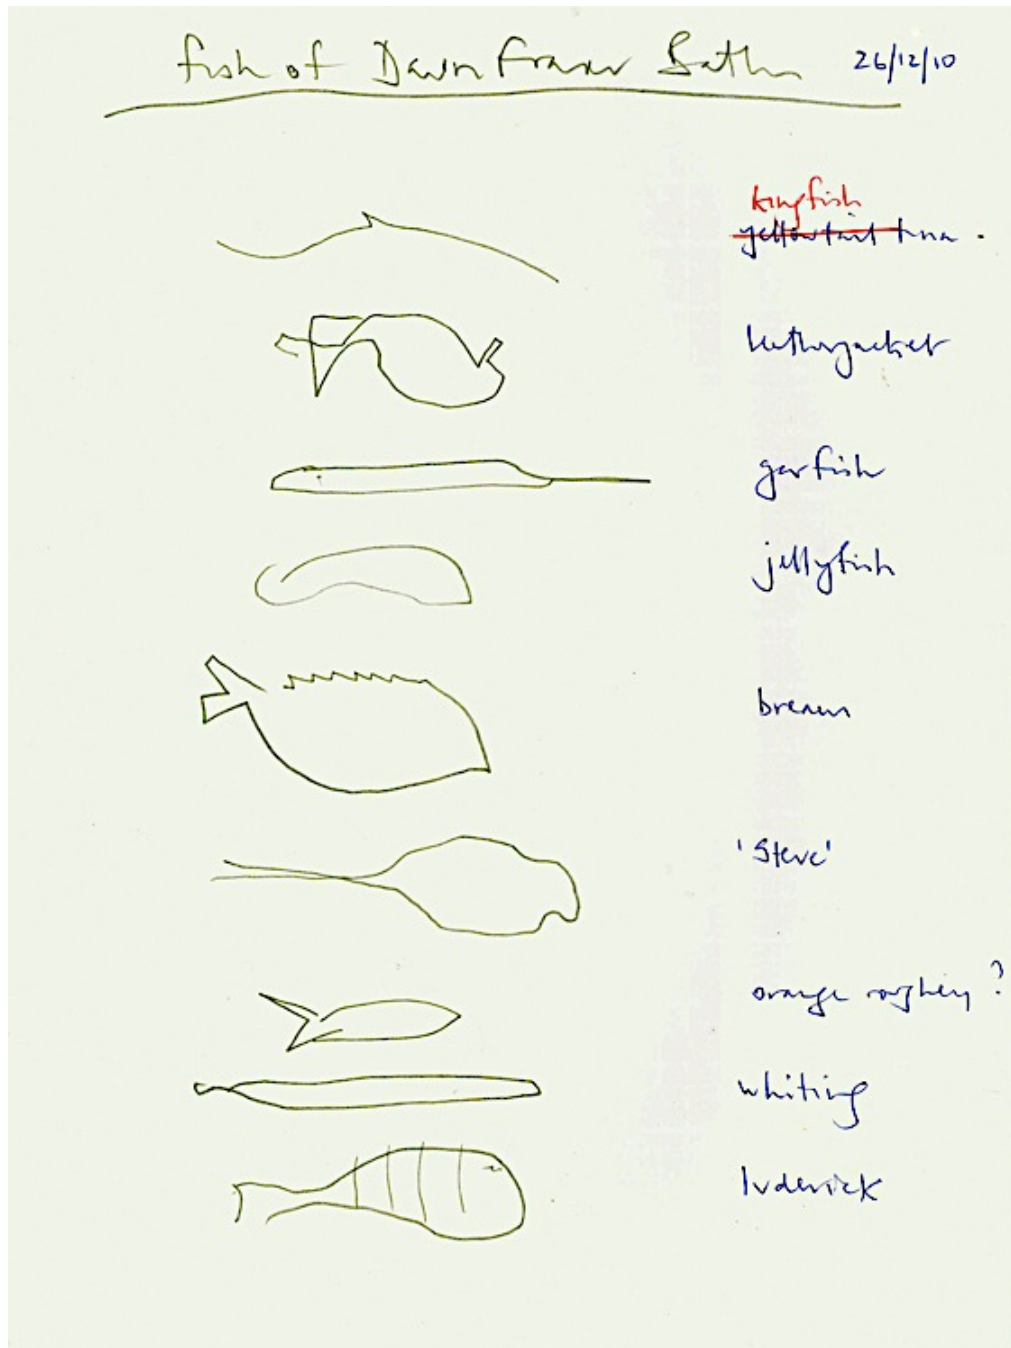 fish of Dawn Fraser Baths 26/12/10
kingfish
yellowtail tuna.
leatherjacket
garfish
jellyfish
bream
'Steve'
orange roughey?
whiting
luderick